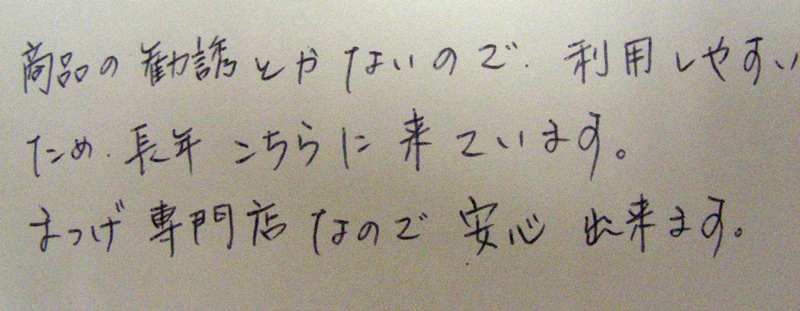 商品の勧誘とかないので、利用しやすい
ため、長年こちらに来ています。
まつげ専門店なので安心出来ます。